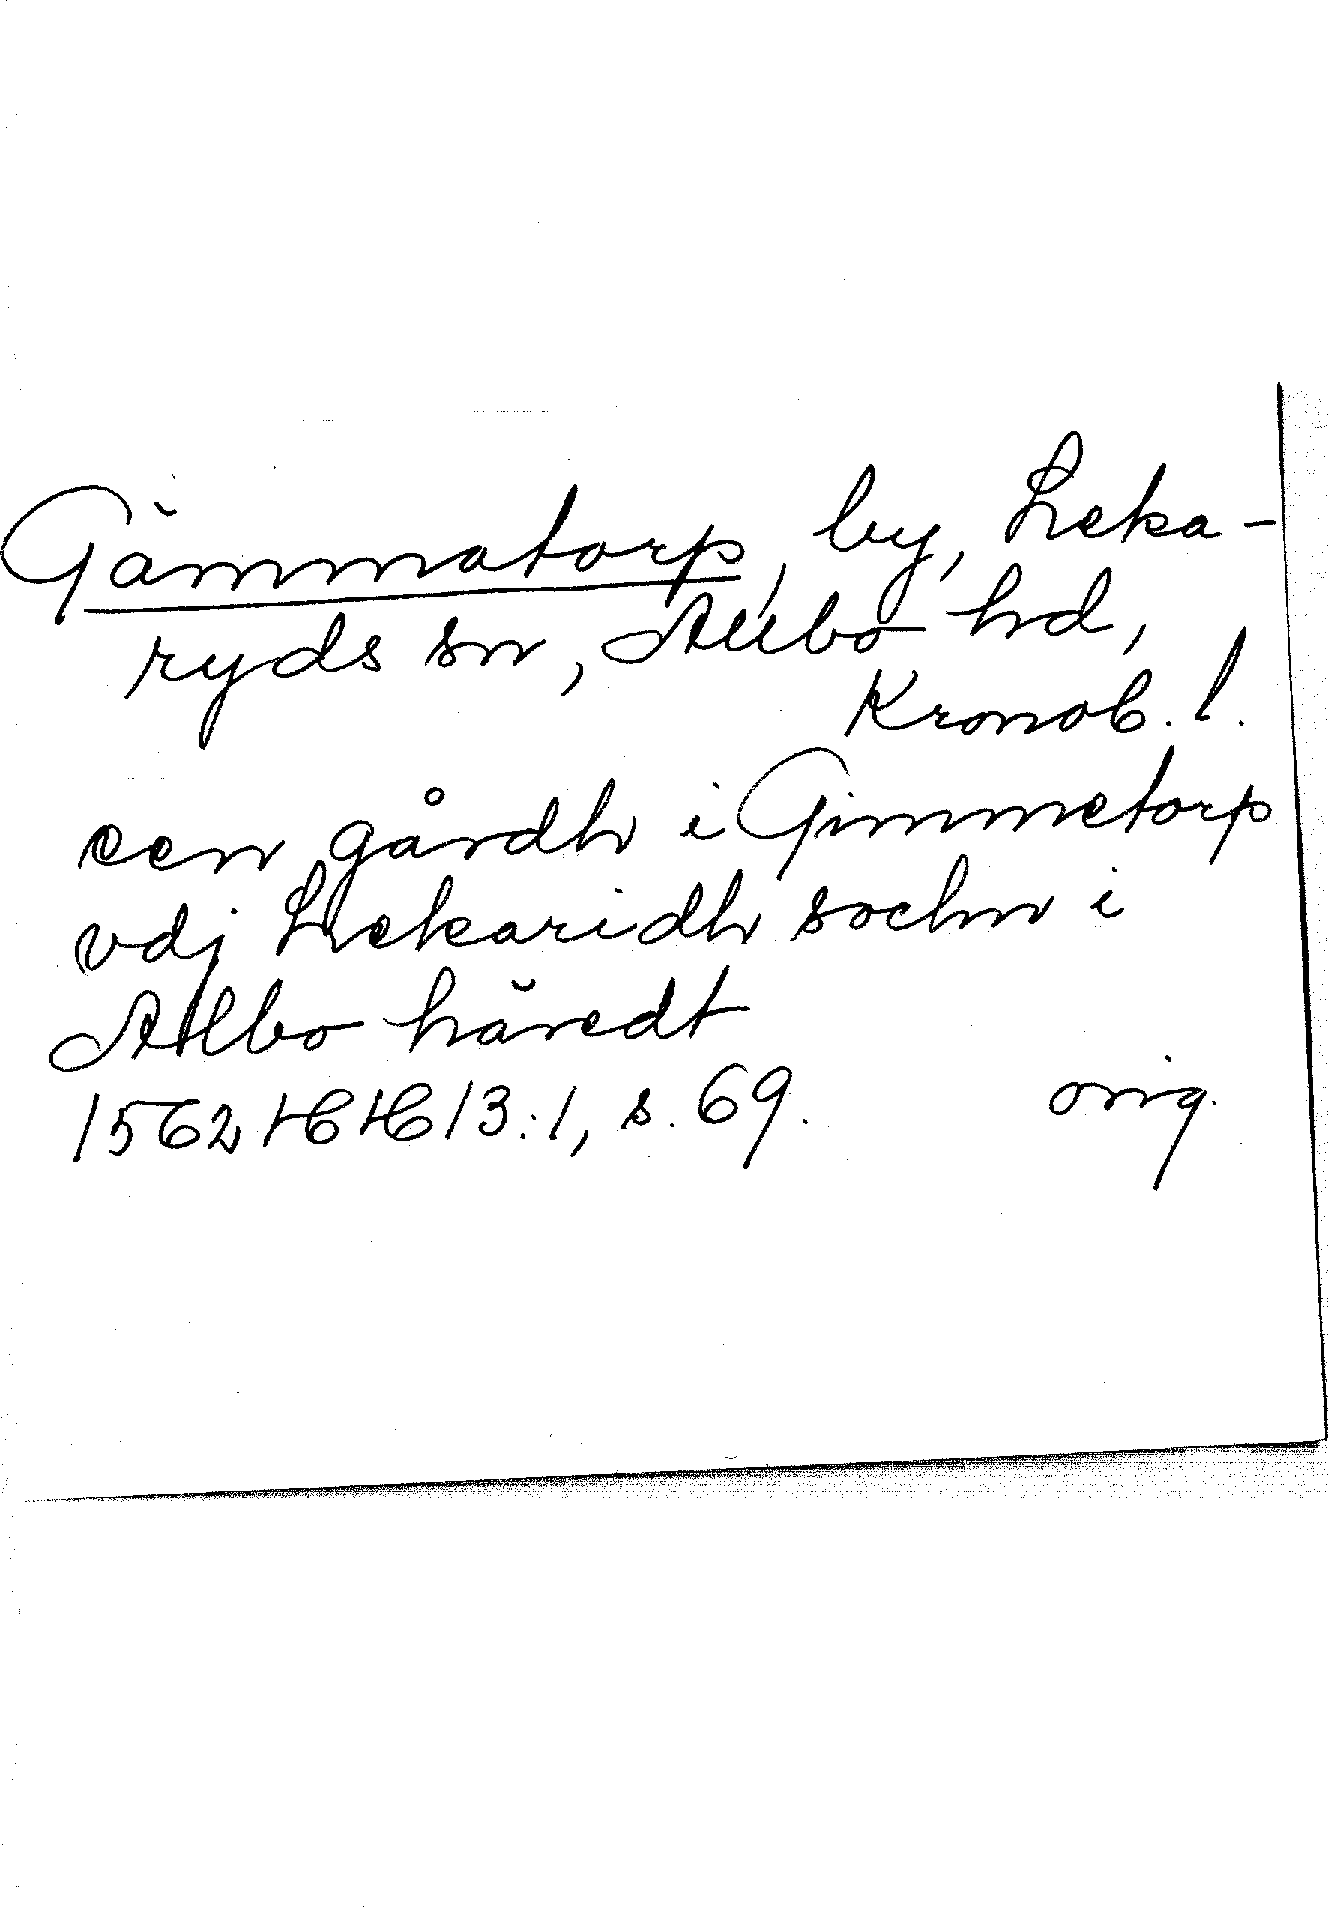 Gämmatorp, by, Leka-
ryds sn, Allbo hd,
Kronob. l.
een gårdh i Gimmetorp
vdj Lekaridh sochn i
Albo häredt
1562 HH 13:1, s. 69. orig.